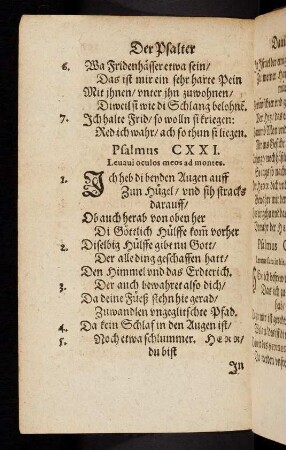 Der Psalter
6. Wa Fridenhässer etwa sein/
Das ist mir ein sehr harte Pein
Mit jhnen/ vnter jhn zuwohnen/
Diweil si wie di Schlang belohnē.
7. Ich halte Frid/ so wolln si kriegen:
Red ich wahr/ ach so thun si liegen.
Psalmus CXXI.
Leuaui oculos meos ad montes.
1. Ich heb di beyden Augen auff
Zun Hügel/ vnd sih stracks
darauff/
Ob auch herab von oben her
Di Göttlich Hülffe kom̃ vorher
2. Diselbig Hülffe gibt nu Gott/
Der alle ding geschaffen hatt/
Den Himmel vnd das Erdterich.
3. Der auch bewahret also dich/
Da deine Füeß stehn hie gerad/
Zuwandlen vngeglitschte Pfad.
4. Da kein Schlaf in den Augen ist/
5. Noch etwa schlummer. HERR/
du bist
In